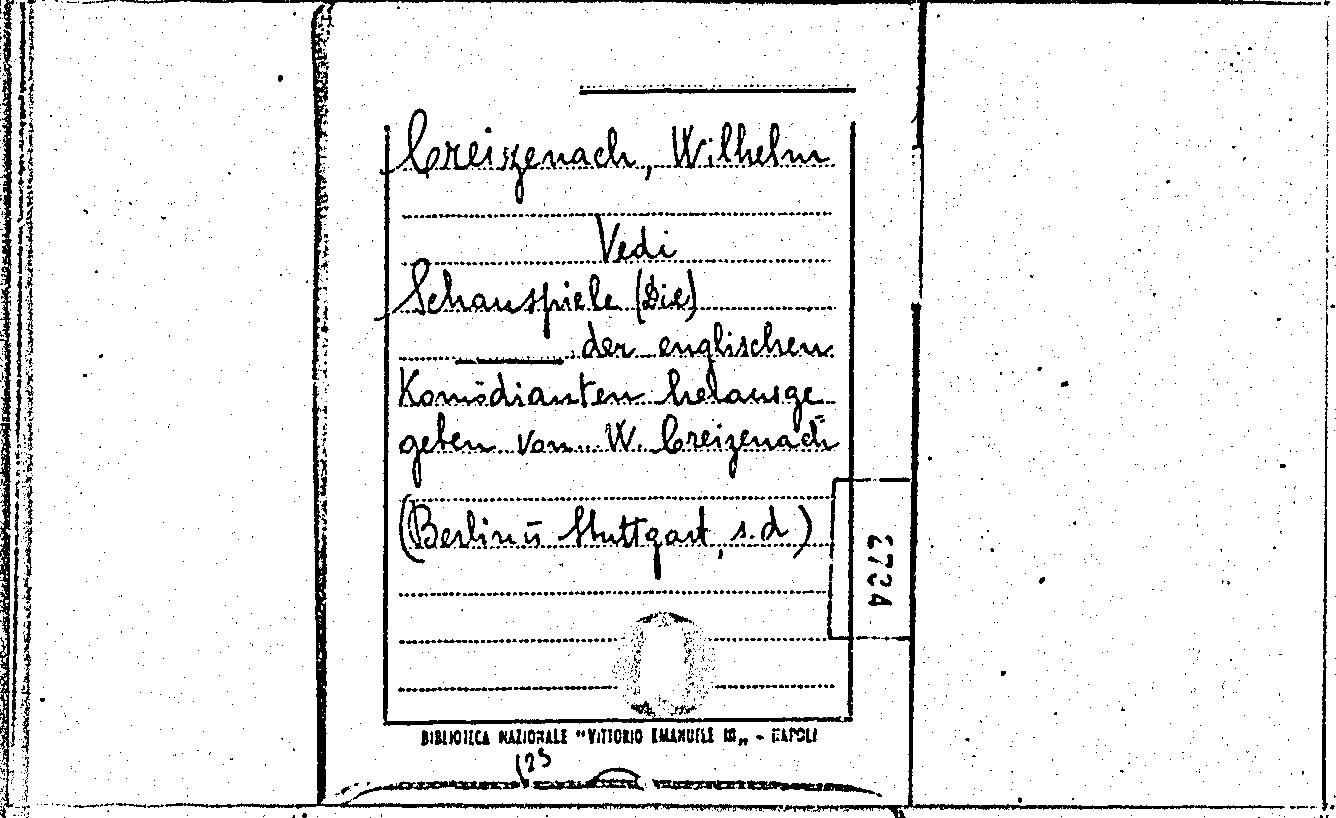 Creizenach, Wilhelm
Vedi
Schauspiele (Die)
der englischen
Komödianten helausge
geben von W. Creizenach
(Berlin ū Stuttgart, s.d.)
2734
BIBLIOTECA NAZIONALE "VITTORIO EMANUELE III„ - NAPOLI
123